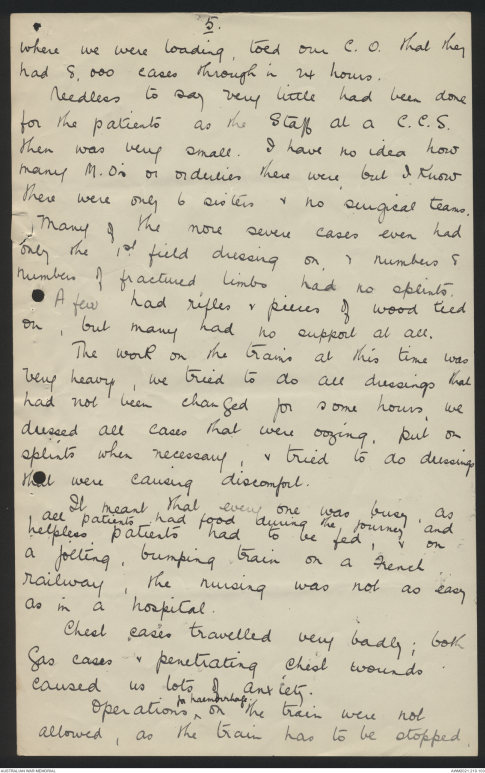 5.
where we were loading, told our C.O. that they
had 8,000 cases through in 24 hours.
Needless to say very little had been done
for the patients as the Staff at a C.C.S.
then was very small. I have no idea how
many M.O's or orderlies there were but I know
there were only 6 sisters & no surgical teams.
Many of the more severe cases even had
only the 1st field dressing on, & numbers &
numbers of fractured limbs had no splints.
A few had rifles & pieces of wood tied
on, but many had no support at all.
The work on the trains at this time was
very heavy, we tried to do all dressings that
had not been changed for some hours, we
dressed all cases that were oozing, put on
splints when necessary, & tried to do dressings
that were causing discomfort.
It meant that every one was busy, as
all patients had food during the journey and
helpless patients had to be fed, & on
a jolting, bumping train on a French
railway, the nursing was not as easy
as in a hospital.
Chest cases travelled very badly; both
Gas cases & penetrating chest wounds
caused us lots of anxiety.
for haemorrhage
Operations, on the train were not
allowed, as the train has to be stopped,
AUSTRALIAN WAR MEMORIAL